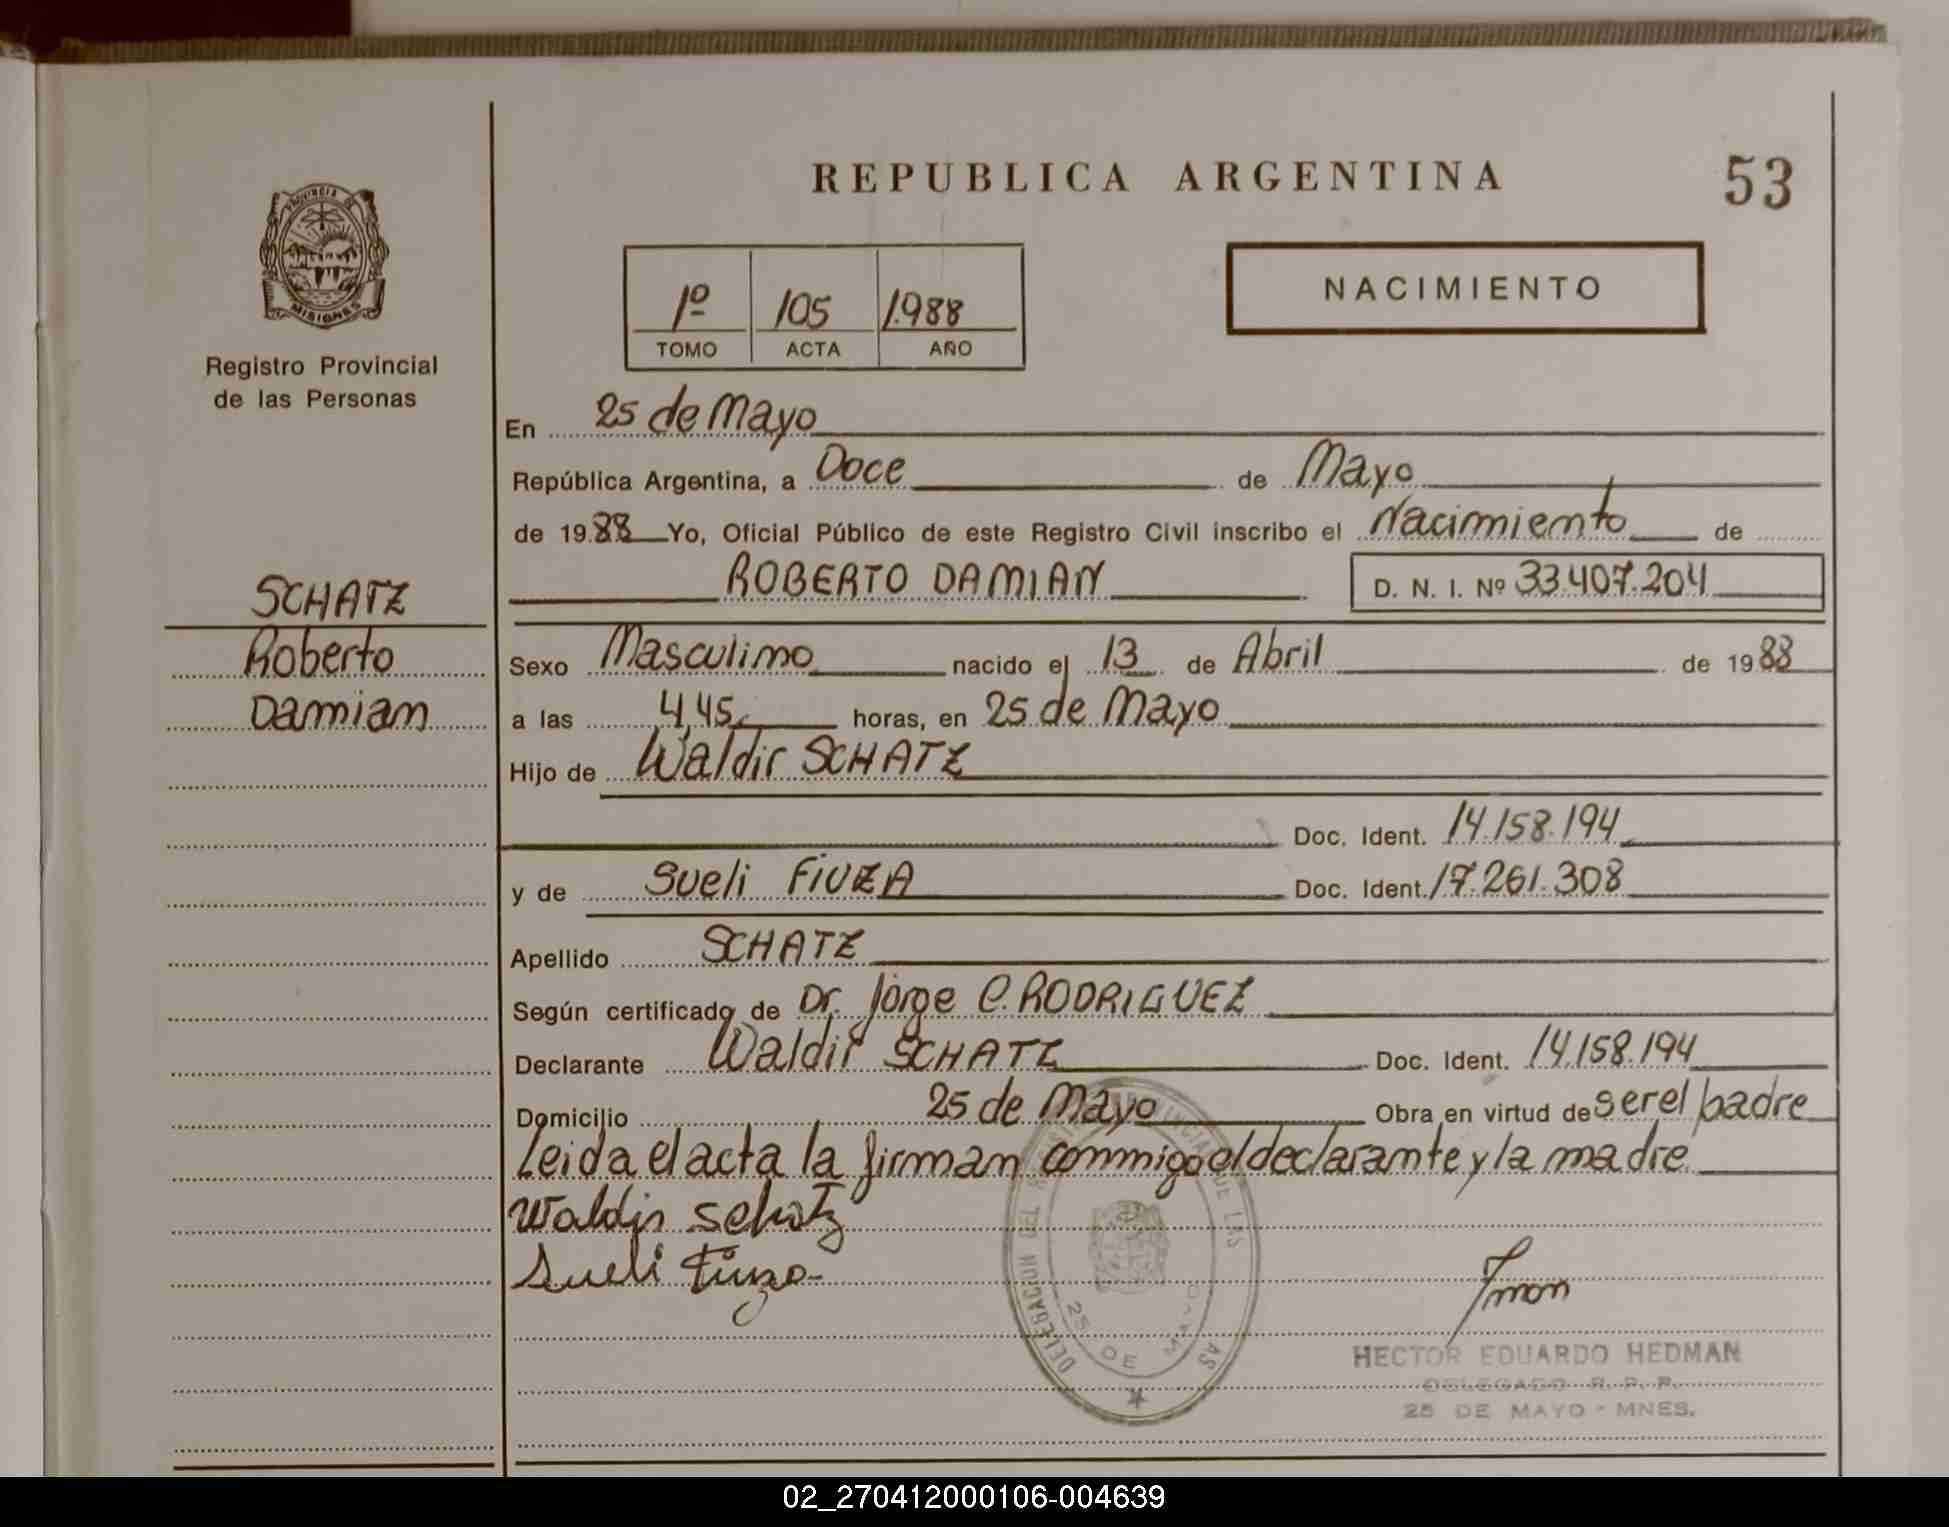 REPUBLICA ARGENTINA
53
PROVINCIA DE
MISIONES
Registro Provincial
de las Personas
1º 105 1.988
TOMO ACTA AÑO
NACIMIENTO
En 25 de Mayo
República Argentina, a Doce de Mayo
de 1988 Yo, Oficial Público de este Registro Civil inscribo el Nacimiento de
ROBERTO DAMIAN D. N. I. Nº 33.407.204
SCHATZ
Roberto
Damian
Sexo Masculino nacido el 13 de Abril de 1988
a las 4,45 horas, en 25 de Mayo
Hijo de Waldir SCHATZ
Doc. Ident. 14.158.194
y de Sueli FIUZA Doc. Ident. 17.261.308
Apellido SCHATZ
Según certificado de Dr. Jorge C. RODRIGUEZ
Declarante Waldir SCHATZ Doc. Ident. 14.158.194
Domicilio 25 de Mayo Obra en virtud de ser el padre
Leida el acta la firman conmigo el declarante y la madre
Waldir Schatz
Sueli Fiuza
DELEGACION DEL REGISTRO PROVINCIAL DE LAS
25 DE MAYO
HECTOR EDUARDO HEDMAN
DELEGADO R. P. P.
25 DE MAYO - MNES.
02_270412000106-004639